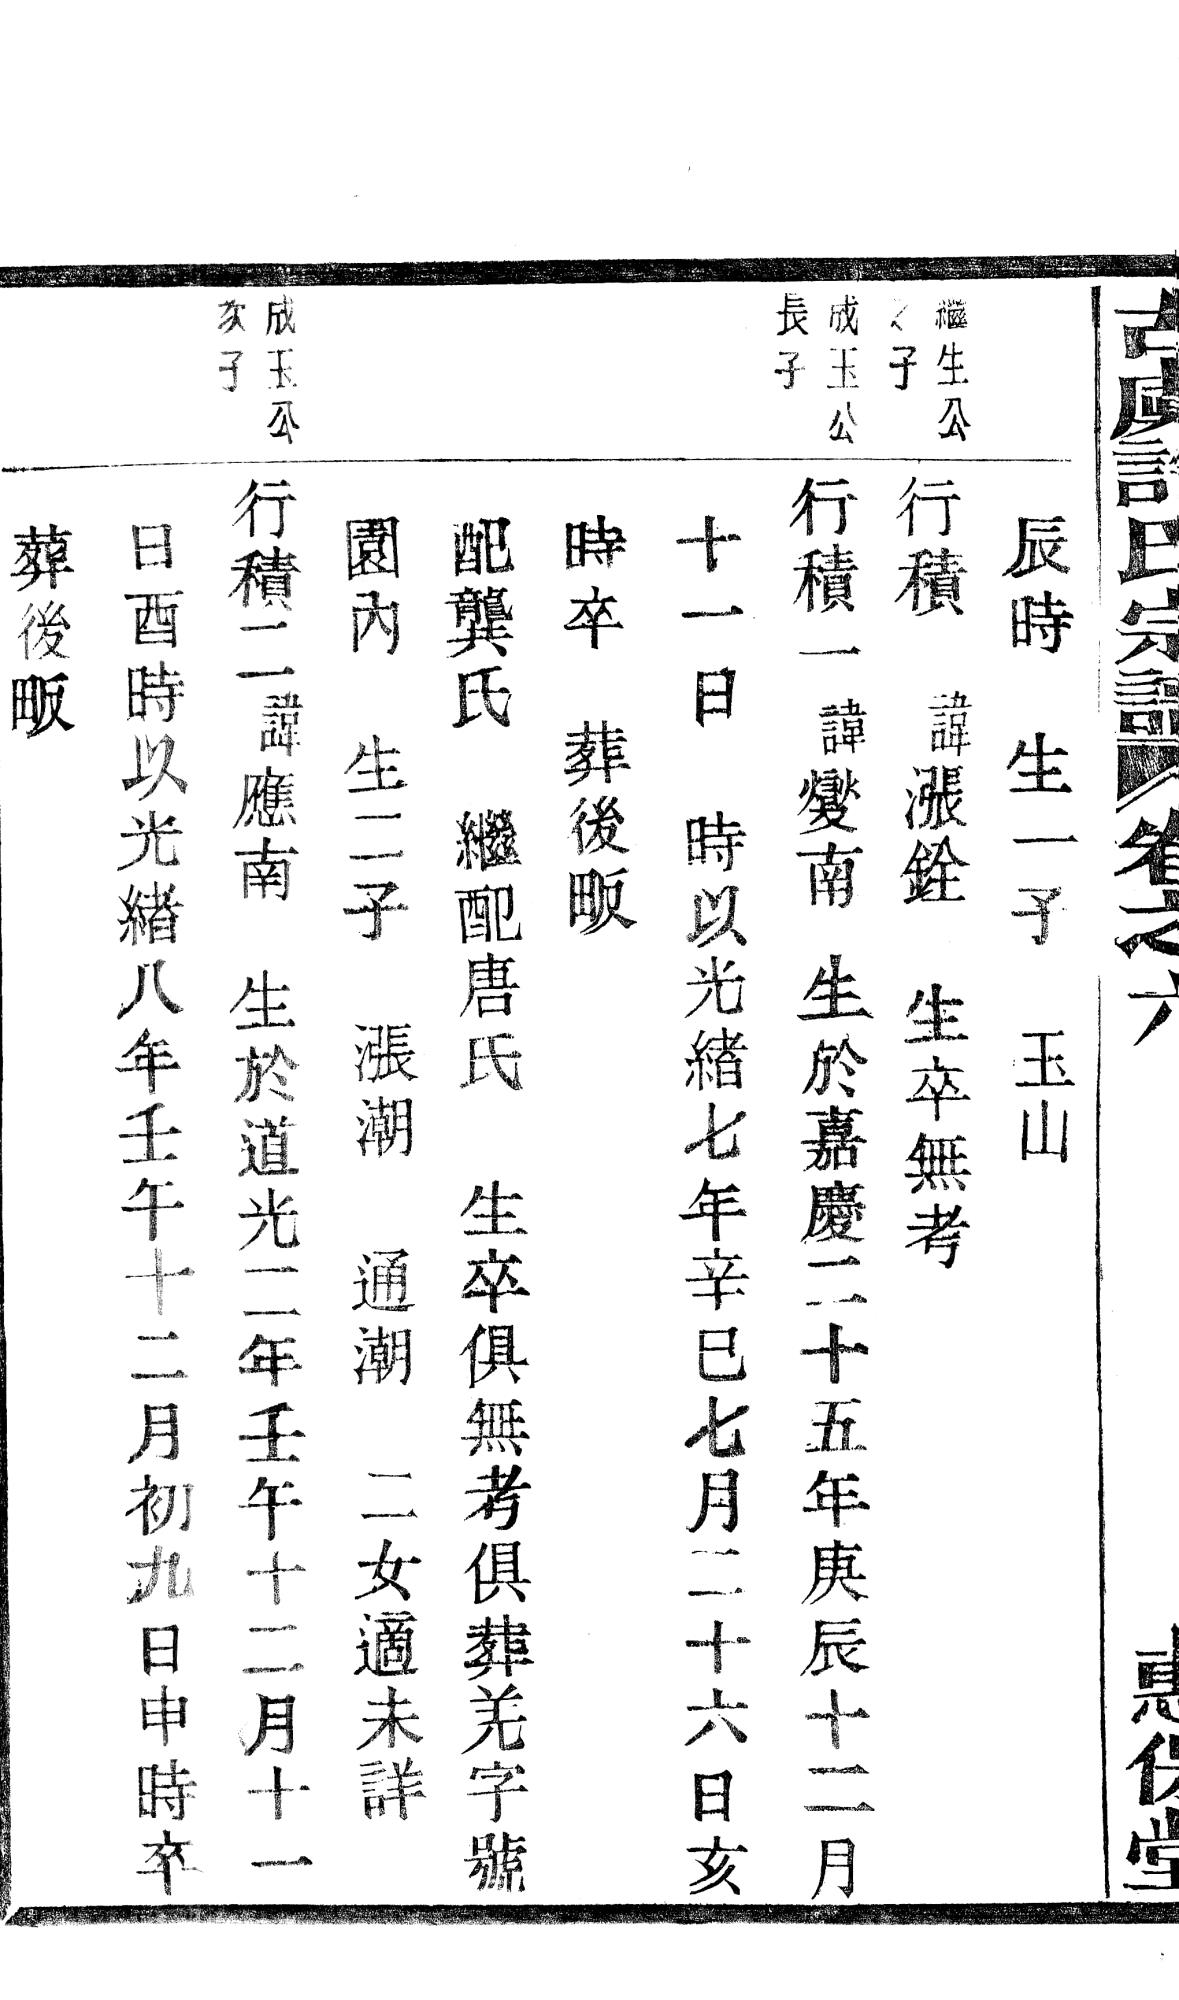 古虞許氏宗譜 卷之六 惠保堂
辰時 生一子 玉山
繼生公
之子
行積 諱漲銓 生卒無考
成玉公
長子
行積一諱爕南 生於嘉慶二十五年庚辰十二月
十一日 時以光緖七年辛巳七月二十六日亥
時卒 葬後畈
配龔氏 繼配唐氏 生卒俱無考俱葬羌字號
園內 生二子 漲潮 通潮 二女適未詳
成玉公
次子
行積二諱應南 生於道光二年壬午十二月十一
日酉時以光緖八年壬午十二月初九日申時卒
葬後畈